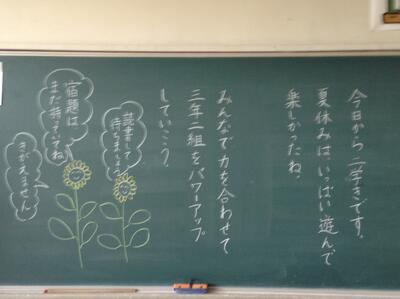 今日から二学きです。
夏休みは、いっぱい遊んで
楽しかったね。
みんなで力を合わせて
三年二組をパワーアップ
していこう。
読書して
待ちましょう
宿題は
まだ持っていてね
きがえません